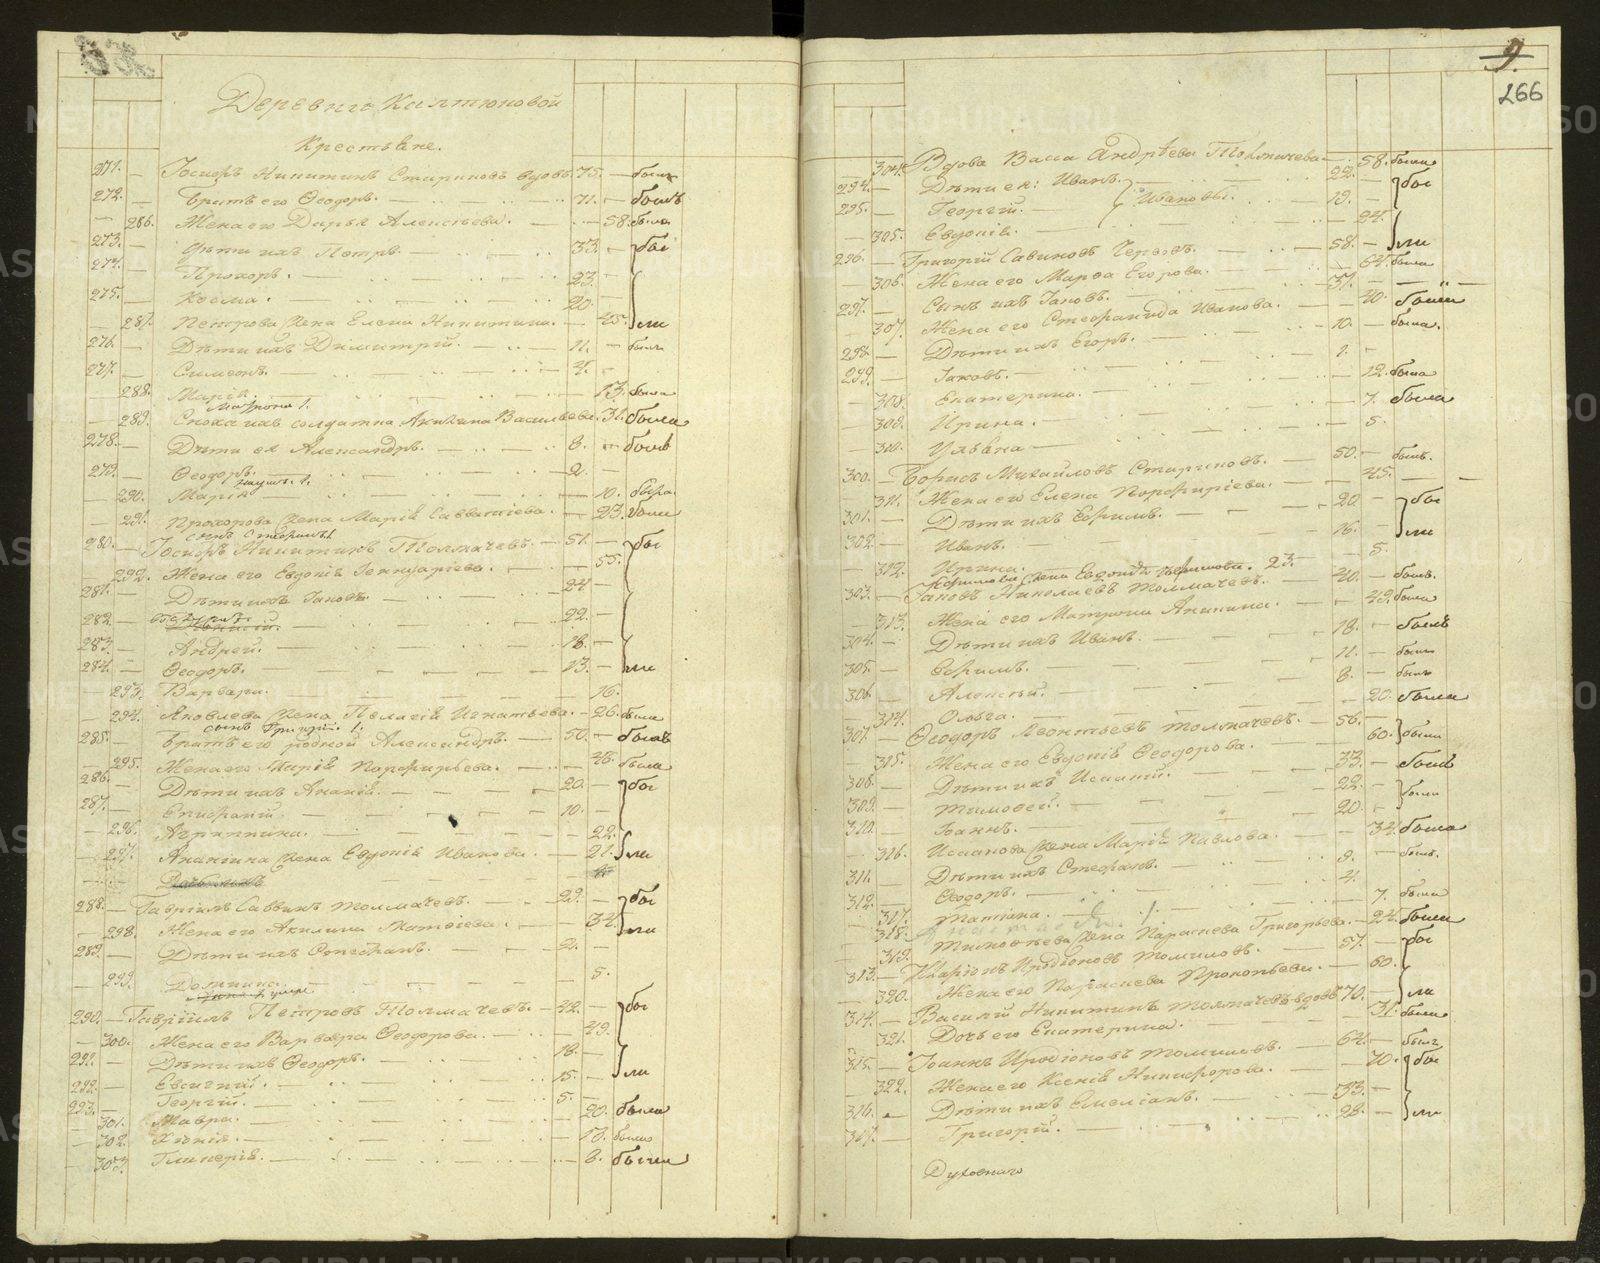 9.
266
Деревня Калтюковой
Крестьяне.
271. Іосифъ Никитинъ Стариковъ вдовъ 75. былъ
272. Братъ его Ѳеодоръ. 71. былъ
286. Жена его Дарья Алексѣева. 58. была
273. Дѣти ихъ Петръ. 33. бы
274. Прохоръ. 23.
275. Косма. 20
287. Петрова жена Елена Никитина. 45. ли
276. Дѣти ихъ Димитрій. 11. былъ
277. Симеонъ. 4.
288. Марія. 13. была
Матрона 1.
289. Сноха ихъ солдатка Акилина Васильева. 31. была
278. Дѣти ея Александръ. 8. былъ
279. Ѳеодоръ. 2.
290. Марія 10. была.
291. Прохорова жена Марія Савватіева. 23. были
сынъ Стефанъ 1
280. Іосифъ Никитинъ Толмачевъ. 51. бы
292. Жена его Евдокія Іеннуаріева. 55.
281. Дѣти ихъ Іаковъ. 24
282. 22.
283. Андрей. 18.
284. Ѳеодоръ. 13. ли
293. Варвара. 16.
294. Яковлева жена Пелагія Игнатьева. 26. была
сынъ Григорій 1.
285. Братъ его родной Александръ. 50. былъ
295. Жена его Марія Парфирьева. 46. была
286. Дѣти ихъ Ананія. 20. бы
287. Епифаній. 10.
296. Агрипина. 22.
297. Ананіина жена Евдокія Иванова. 21. ли
288. Гавріилъ Саввинъ Толмачевъ. 29. бы
298. Жена его Акилина Матѳіева. 34. ли
289. Дѣти ихъ Стефанъ. 2.
299. Домника. 5.
290. Гавріилъ Петровъ Толмачевъ. 42. бы
300. Жена его Варвара Ѳеодорова. 49.
291. Дѣти ихъ Ѳеодоръ. 18.
292. Евсигній. 15. ли
293. Георгій. 5.
301. Мавра. 20. была
302. Хіонія. 13. была
303. Гликерія. 8. были
304. Вдова Васса Андрѣева Толмачева 58. была
294. Дѣти ея: Иванъ. 22. бы
295. Георгій. Ивановы. 19.
305. Евдокія. 24. ли
296. Григорій Савиновъ 58.
306. Жена его Марѳа Егорова. 64. была
297. Сынъ ихъ Іаковъ. 37.
307. Жена его Стефанида Иванова. 40. были
298. Дѣти ихъ Егоръ. 10. была.
299. Іаковъ. 1.
308. Екатерина. 12. была
309. Ирина. 7. была
310. Ульяна 5.
300. Борисъ Михайловъ Стариковъ. 50. былъ.
311. Жена его Елена Порфиріева. 45.
301. Дѣти ихъ Ефимъ. 20 бы
302. Иванъ. 16. ли
312. Ирина. 5.
Ефимова жена Евдокія Ефимова. 23.
303. Іаковъ Николаевъ Толмачевъ. 40. былъ.
313. Жена его Матрона Аникина. 49. была
304. Дѣти ихъ Иванъ. 18. былъ
305. Ефимъ. 11. былъ
306. Алексѣй. 8. былъ
314. Ольга. 20. была
307. Ѳеодоръ Леонтьевъ Толмачевъ. 56.
315. Жена его Евдокія Ѳеодорова. 60. были
308. Дѣти ихъ Исаакій. 33. былъ
309. Тимоѳей. 22. были
310. Іоаннъ. 20.
316. Исаакова жена Марія Павлова. 34. была
311. Дѣти ихъ Стефанъ. 9. былъ.
312. Ѳеодоръ. 4.
317. Татіана. 7. была
318. Анастасія 1.
319. Тимоѳеева жена Параскева Григорьева. 24. были
313. Иларіонъ Иродіоновъ Томиловъ. 57. бы
320. Жена его Параскева Прокопьева. 60. ли
314. Василій Никитинъ Толмачевъ вдовъ 70.
321. Дочь его Екатерина. 31. были
315. Іоаннъ Иродіоновъ Томиловъ. 64. былъ
322. Жена его Ксенія Никифорова. 70. бы
316. Дѣти ихъ Емеліанъ. 33.
317. Григорій. 28. ли
Духовнаго